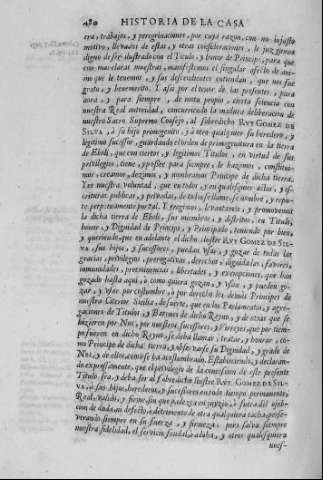 480 HISTORIA DE LA CASA
era, trabajos, y peregrinaciones, por cuya razon, con no injusto
motivo, llevados de estas, y otras consideraciones, le juzgamos
digno de ser ilustrado con el Titulo, y honor de Principe, para que
con mas claras muestras, manifestemos el singular afecto de ani-
mo que le tenemos, y sus descendientes entiendan, que nos fuè
grato, y benemerito. Y assi por el tenor de las presentes, para
aora, y para siempre, de motu proprio, cierta sciencia con
nuestra Real autoridad, con madura deliberacion de
nuestro Sacro Supremo Consejo, al sobredicho RUY GOMEZ DE
SILVA, à su hijo primogenito, y à otro qualquier su heredero, y
legitimo sucessor, guardando el orden de primogenitura en la tierra
de Eboli, que con cierto, y legitimo Titulo, en virtud de sus
privilegios, tiene, y possee para siempre, le hazemos, constitui-
mos, creamos, dezimos, y nombramos Principe de dicha tierra.
Y es nuestra voluntad, que en todos, y en qualesquier actos, y es-
crituras publicas, y privadas, de todos se llame, se nombre, y repu-
te perpetuamente por tal. Y eregimos, levantamos, y promovemos
la dicha tierra de Eboli, sus miembros, y distritos, en Titulo,
honor, y Dignidad de Principe, y Principado, teniendo por bien,
y queriendo, que en adelante el dicho ilustre RUY GOMEZ DE SIL-
VA, sus hijos, y sucessores, puedan usar, y gozar de todas las
gracias, privilegios, prerogativas, derechos, dignidades, favores,
inmunidades, preeminencias, libertades, y exempciones, que han
gozado hasta aqui, ò como quiera gozan, y usan, y pueden go-
zar, y usar por costumbre, ò por derecho los demàs Principes de
nuestro Citerior Sicilia, de suerte, que en los Parlamentos, y agre-
gaciones de Titulos, y Barones de dicho Reyno, y de otras que se
hizieren por Nos, por nuestros sucessores, y Virreyes, que por tiem-
po fueren en dicho Reyno, se deba llamar, tratar, y honrar, co-
mo Principe de dicha tierra, y observarse su Dignidad, y grado de
Nos, y de ellos, como se ha acostumbrado. Estableciendo, y declaran-
do expressamente, que el privilegio de la concession de este presente
Titulo sea, y deba ser al sobredicho ilustre RUY GOMEZ DE SIL-
VA, à sus hijos, herederos, y sucessores en todo tiempo permanente,
Real, valido, y firme, sin que padezca en juyzio, ò fuera dèl, objec-
cion de duda, ò defecto, ò detrimento de otra qualquiera tacha, perse-
verando siempre en su fuerça, y firmeza: pero salva siempre
nuestra fidelidad, el servicio feudal, ò adoha, y otros qualesquiera
nues-